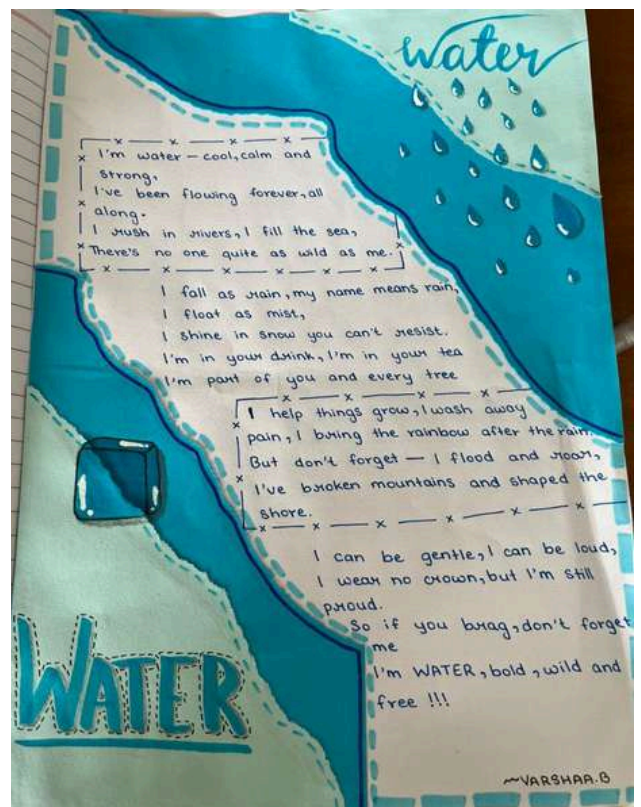 water
I'm water — cool, calm and
strong,
I've been flowing forever, all
along.
I rush in rivers, I fill the sea,
There's no one quite as wild as me.
I fall as rain, my name means rain,
I float as mist,
I shine in snow you can't resist.
I'm in your drink, I'm in your tea
I'm part of you and every tree
I help things grow, I wash away
pain, I bring the rainbow after the rain.
But don't forget — I flood and roar,
I've broken mountains and shaped the
shore.
I can be gentle, I can be loud,
I wear no crown, but I'm still
proud.
So if you brag, don't forget
me
I'm WATER, bold, wild and
free !!!
WATER
~VARSHAA.B